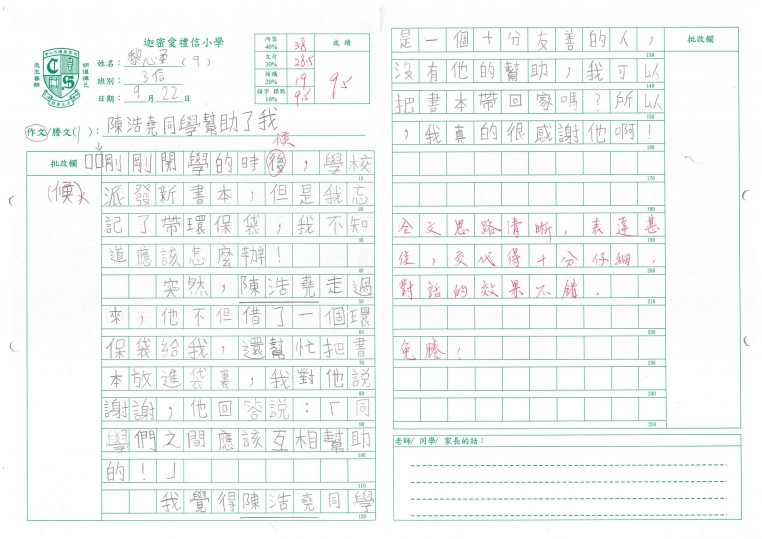 迦密愛禮信小學
姓名： 黎心柔 (9)
班別： 3信
日期： 9 月 22 日
內容 40% 38
文句 30% 28.5
結構 20% 19
錯字 標點 10% 9.5
成績
95
作文/謄文(1)： 陳浩堯同學幫助了我
批改欄
候
(候)
剛剛開學的時後，學校
派發新書本，但是我忘
記了帶環保袋，我不知
道應該怎麼辦！
突然，陳浩堯走過
來，他不但借了一個環
保袋給我，還幫忙把書
本放進袋裏，我對他說
謝謝，他回答說：「同
學們之間應該互相幫助
的！」
我覺得陳浩堯同學
10
20
30
40
50
60
70
80
90
100
110
120
是一個十分友善的人，
沒有他的幫助，我可以
把書本帶回家嗎？所以
，我真的很感謝他啊！
全文思路清晰，表達甚
佳，交代得十分仔細，
對話的效果不錯。
免謄！
130
140
150
160
170
180
190
200
210
220
230
240
250
批改欄
老師/ 同學/ 家長的話：